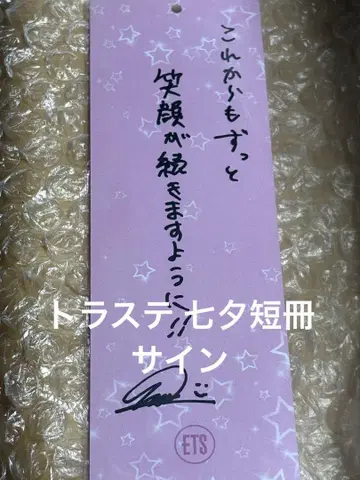 これからもずっと
笑顔が続きますように!!
トラステ 七夕短冊
サイン
ETS